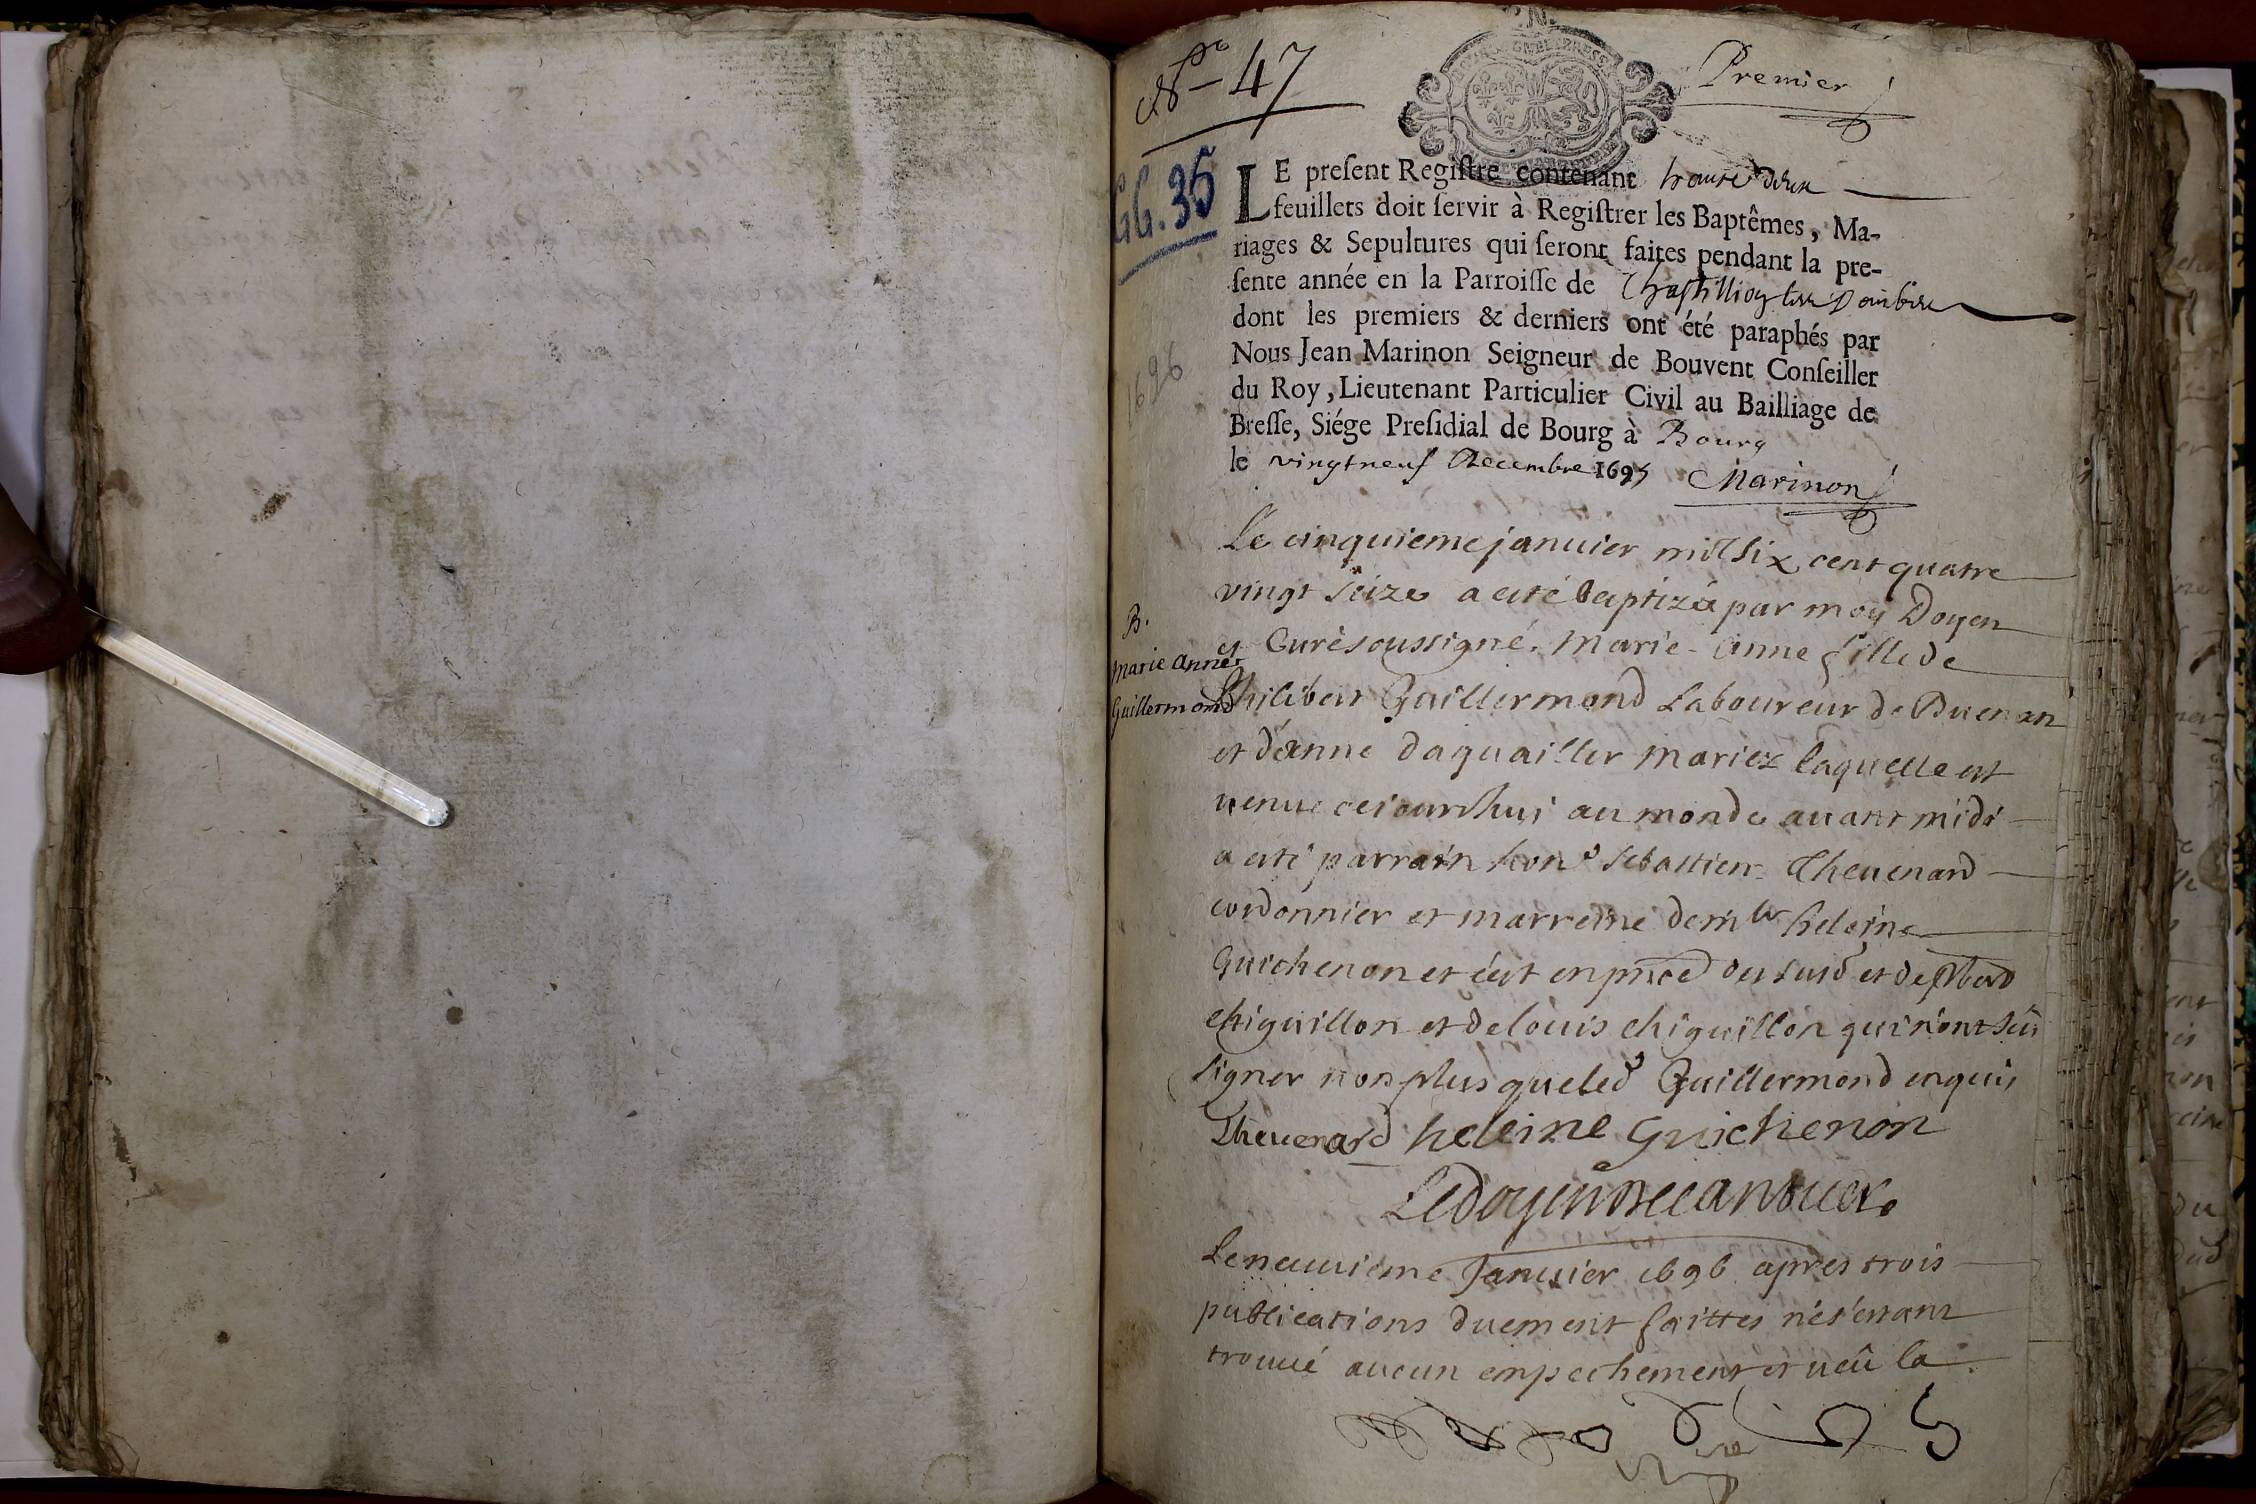 No 47
Premier
GG. 35
LE present Registre contenant trante deux
feuillets doit servir à Registrer les Baptêmes, Ma-
riages & Sepultures qui seront faites pendant la pre-
sente année en la Parroisse de Chastillion les Dombes
dont les premiers & derniers ont été paraphés par
Nous Jean Marinon Seigneur de Bouvent Conseiller
du Roy, Lieutenant Particulier Civil au Bailliage de
Bresse, Siége Presidial de Bourg à Bourg
le vingtneuf Decembre 1695 Marinon
1696
Le cinquieme janvier mil six cent quatre
vingt seize a esté baptizée par moy Doyen
et Curé soussigné, Marie-Anne fille de
B.
Marie Anne
Guillermond
Philibert Guillermond Laboureur de Buenan
et d'anne daguailler mariez laquelle est
venue cejourdhui au monde avant midi
a esté parrain hon^e Sebastien Thevenard
cordonnier et marreine dem^lle heleine
Guichenon et c'est en pñce du susd et de
chiguillon et de louis chiguillon qui n'ont sçû
signer non plus que led Guillermond enquis
Thevenard heleine Guichenon
Le doyen
Le neuvieme Janvier 1696 apres trois
publications duement faittes ne s'estant
trouvé aucun empechement et veû la